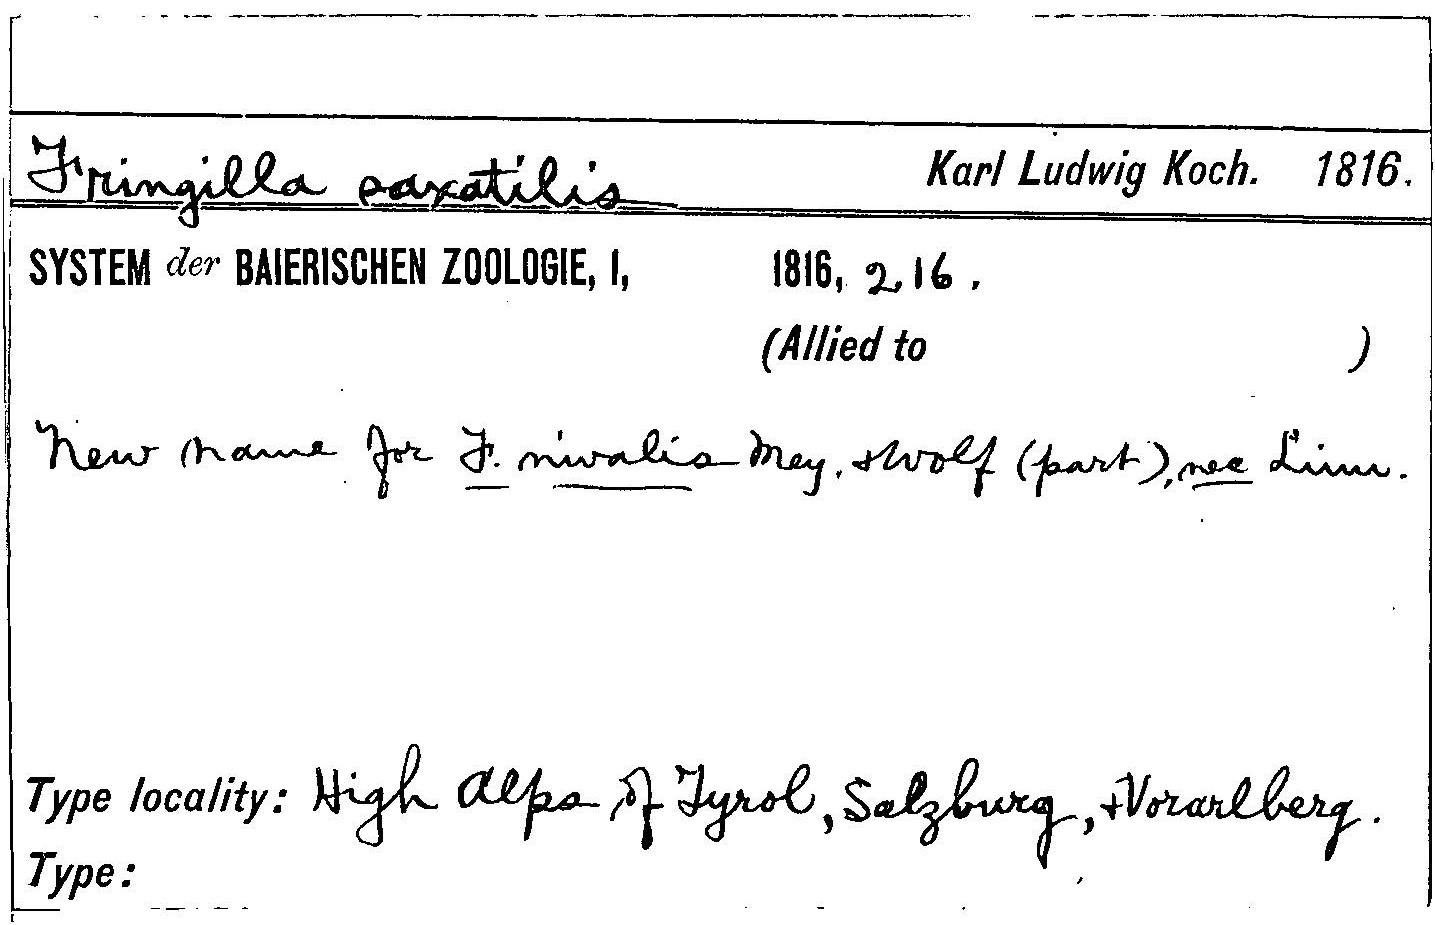 Fringilla saxatilis Karl Ludwig Koch. 1816.
SYSTEM der BAIERISCHEN ZOOLOGIE, I, 1816, 216.
(Allied to )
New name for F. nivalis Mey. & Wolf (part), nec Linn.
Type locality: High Alps of Tyrol, Salzburg, & Vorarlberg.
Type: